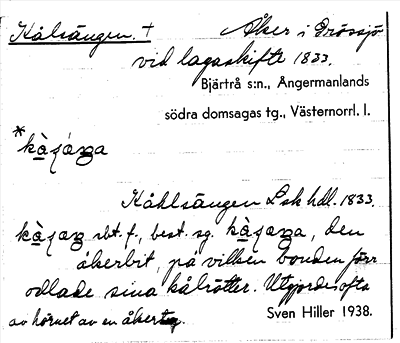 Kålsängen. † Åker i Grössjö
vid lagaskifte 1833.
Bjärtrå s:n., Ångermanlands
södra domsagas tg., Västernorrl. l.
*kàʃáŋa
Kåhlsängen Lsk hdl. 1833.
kàʃaŋ sbt. f., best. sg. kàʃaŋa, den
åkerbit, på vilken bonden förr
odlade sina kålrötter. Utgjordes ofta
av hörnet av en åker
Sven Hiller 1938.